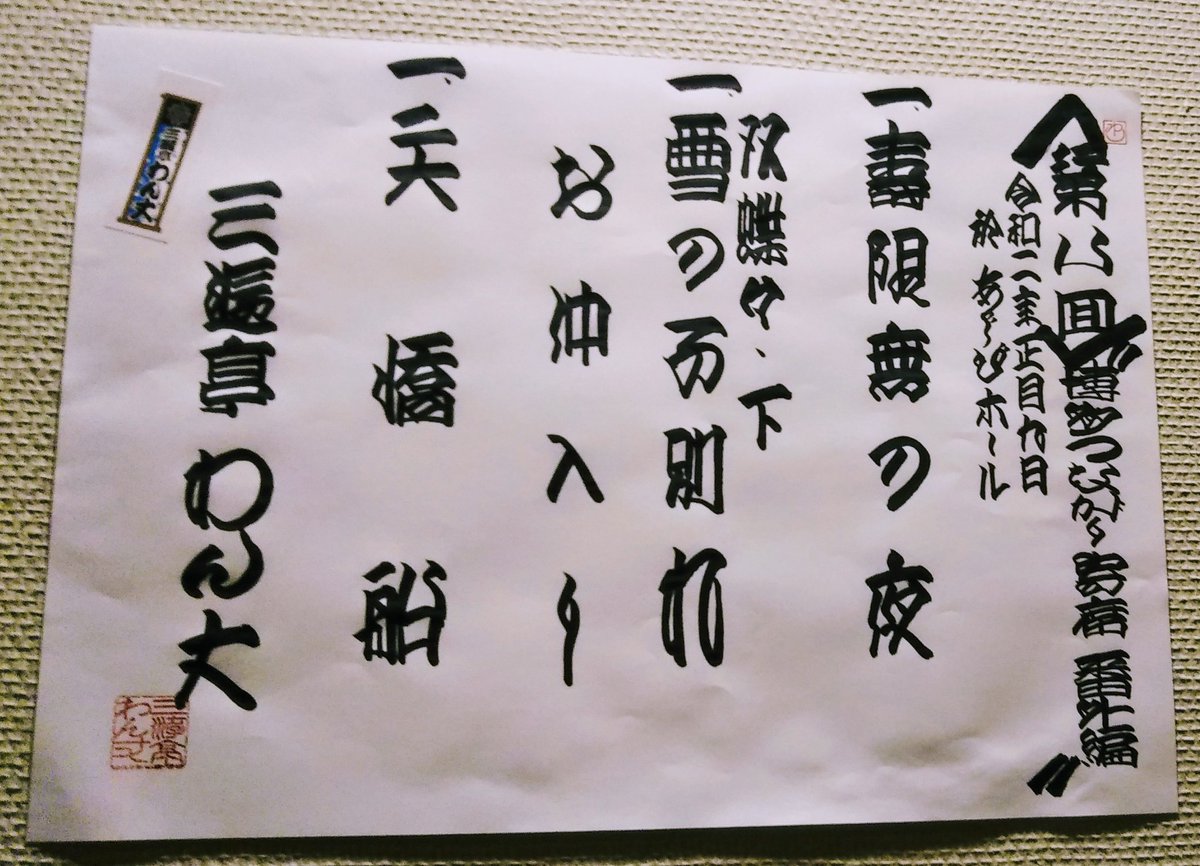 第八回 博多つながり寄席 番外編
令和二年正月九日
於 ホール
一、寿限無の夜
双蝶々・下
一、雪の子別れ
お仲入り
一、矢橋船
三遊亭わん丈
三遊亭わん丈
三遊亭わん丈